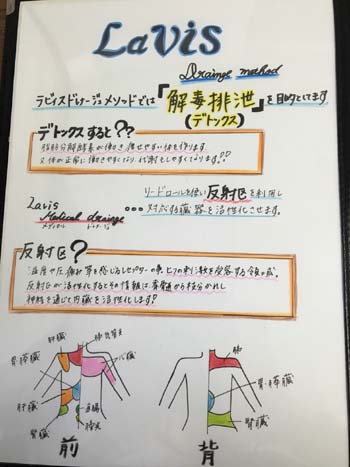 LaVis
Drainge method
ラビィスドレナージュメソッドでは「解毒排泄」を目的としてます
(デトックス)
デトックスすると??
脂肪分解酵素が働き痩せやすい体を作ります
又体が正常に働きやすくなり、代謝もしやすくなります!?
リードロールを使い反射区を利用し
Lavis
Medical drainge
メディカル ドレナージュ
・・・対応する臓器を活性化させます。
反射区?
温度や圧、痛み等を感じるレセプターの事、ヒフの刺激を受容する領域、
反射区が活性化するとその情報は脊髄から枝分かれし
神経を通じて内臓を活性化します!
肝臓
肺
心臓
腎臓
前
肺
腎臓
背